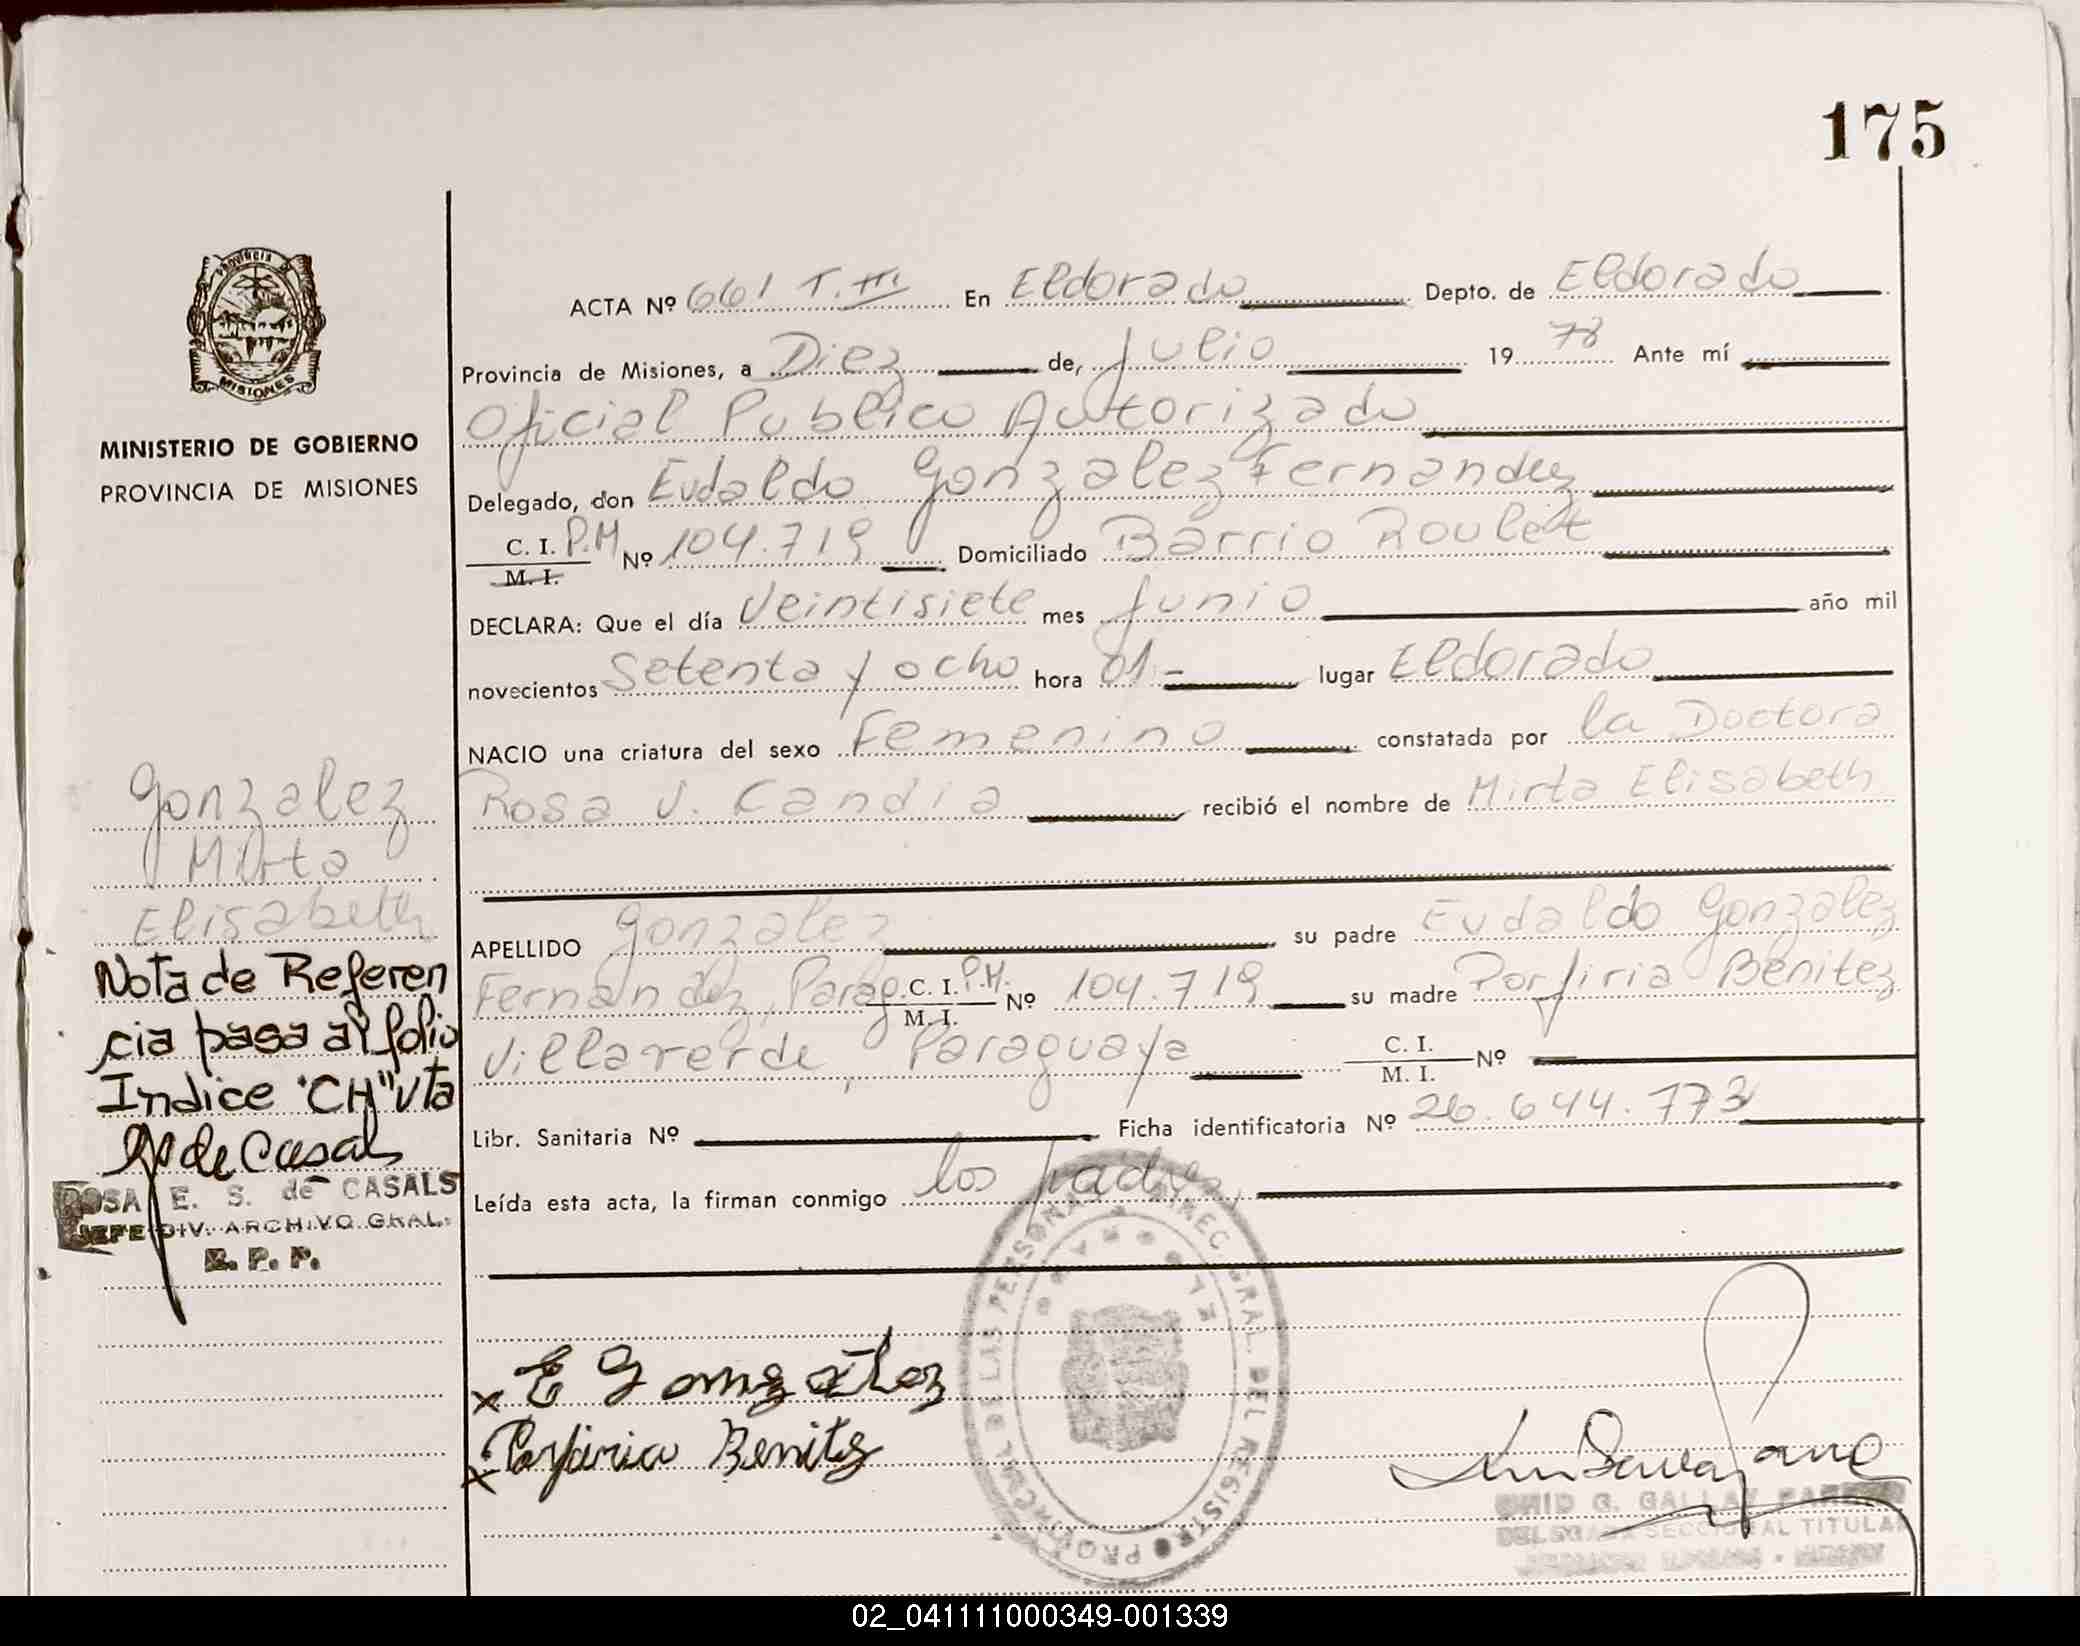 175
PROVINCIA DE
MISIONES
MINISTERIO DE GOBIERNO
PROVINCIA DE MISIONES
ACTA Nº 661 T. III En Eldorado Depto. de Eldorado
Provincia de Misiones, a Diez de, Julio 19 78 Ante mí
Oficial Publico Autorizado
Delegado, don Eudaldo Gonzalez Fernandez
C. I. P.M Nº 104.719 Domiciliado Barrio Roulet
M. I.
DECLARA: Que el día Veintisiete mes Junio año mil
novecientos Setenta y ocho hora 01- lugar Eldorado
NACIO una criatura del sexo Femenino constatada por la Doctora
Rosa V. Candia recibió el nombre de Mirta Elisabeth
APELLIDO Gonzalez su padre Eudaldo Gonzalez
Fernandez, Parag. C. I. P.M. Nº 104.719 su madre Porfiria Benitez
M. I.
Villaverde, Paraguaya C. I. Nº
M. I.
Libr. Sanitaria Nº Ficha identificatoria Nº 26.644.773
Leída esta acta, la firman conmigo los padres
Gonzalez
Mirta
Elisabeth
Nota de Referen
cia pasa al folio
Indice "CH" Vta
de Casals
ROSA E. S. de CASALS
JEFE DIV. ARCHIVO GRAL.
R. P. P.
x E Gonzalez
x Porfiria Benitez
PROVINCIAL DE LAS PERSONAS
DIREC. GRAL. DEL REGISTRO
ELDORADO
G. GALLAY
SECCIONAL TITULAR
02_041111000349-001339